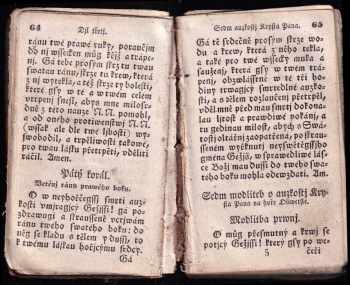 64
Djl třetj.
ránu twé prawé ruky, poraučjm
tobě wssecken můg kžjž a trápe-
nj. Gá tebe prosým skrz tu twau
swatau ránu, skrze tu krew, která
z nj wytekla, a též skrze ty bolesti,
které gsy w té a w twém celém
vtrpenj snesl, abys mne milosr-
dně z této nauze N. N. pomohl,
a od oného protiwenstwj N. N.
(wssak ale dle twé ljbosti) wy-
swobodil, a trpěliwosti takowé,
pro twau lásku přetrpěti, vděliti
ráčil. Amen.
Pátý korál.
Wctěnj ránu prawého boku.
O w neyhořčegssj smrti auzkosti
vmjragjcý Gežjssi! ga po-
zdrawugi a strausseně vctjwám
ránu twého swatého boku; do
něg se kladu s tělem y dussj, to
k twému láskau hořjcýmu srdcy.
Gá
Sedm auzkostj Krysta Pána.
65
Gá tě srdečně prosým skrze wo-
du a krew, která z něho tekla,
a také pro twé wssecky muka a
saužený, která gsy w twém tra-
penj, obzwlásstně w té tři ho-
diny trwagjcý smrtedlné auzko-
sti, a s tělem rozlaučenj přetrpěl,
vděl mně před mau smrtj dokona-
lau ljtost a prawdiwé pokánj, a
tu gedinau milost, abych o Swá-
tostj oleatj zaopatřená, a po stra-
usseném wyřknutj neyswětěgssjho
gména Gežjš, w sprawedliwé lás-
ce Božj mau dussi do twého swa-
tého boku mohla odewzdati. Am.
Sedm modliteb o auzkosti Kry-
sta Pána na hoře Oliwetské.
Modlitba prwnj.
O můg přesmutný a krwj se
potjcý Gežjssi! který gsy po we-
5
čeři